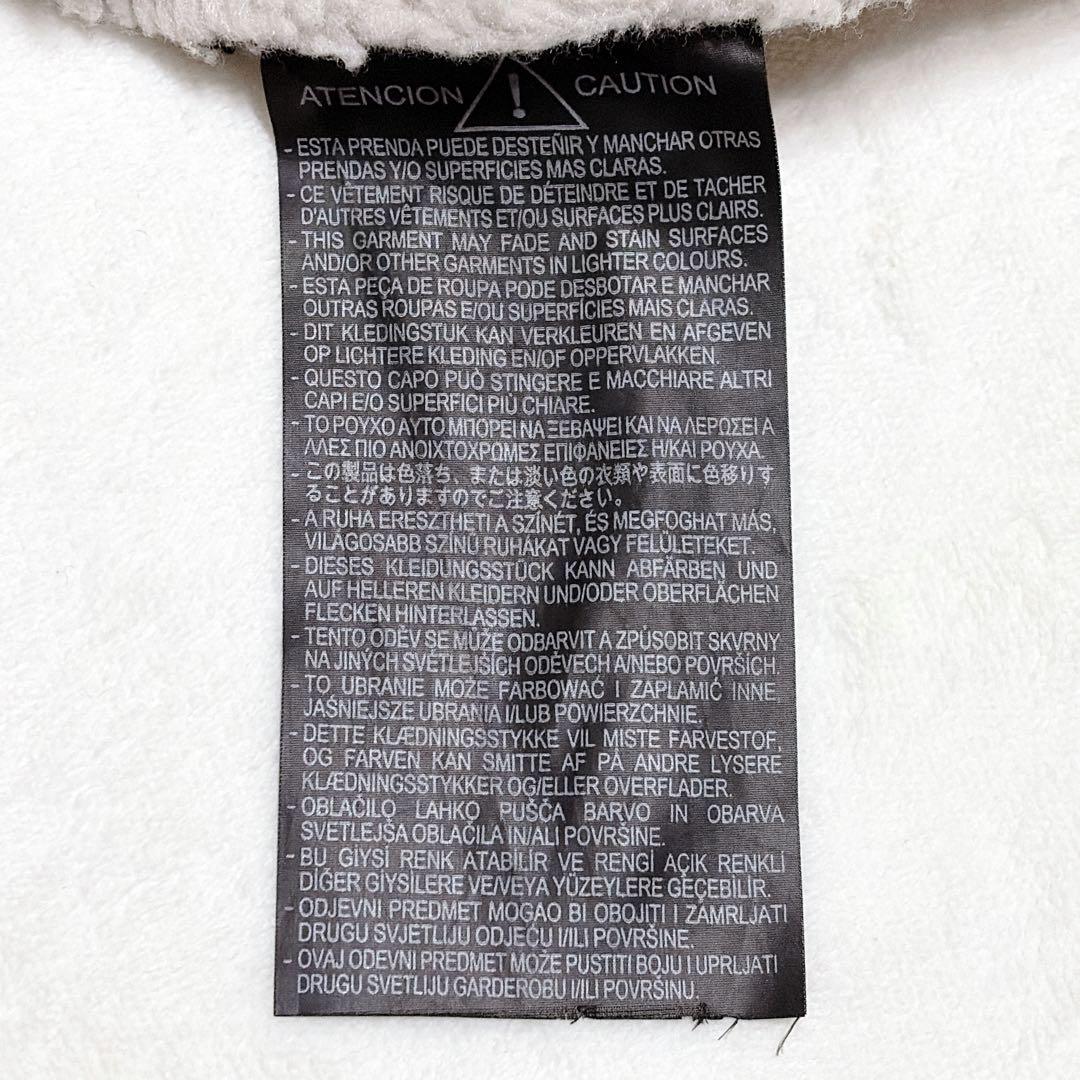 ATENCION ! CAUTION
- ESTA PRENDA PUEDE DESTEÑIR Y MANCHAR OTRAS
PRENDAS Y/O SUPERFICIES MAS CLARAS.
- CE VÊTEMENT RISQUE DE DÉTEINDRE ET DE TACHER
D'AUTRES VÊTEMENTS ET/OU SURFACES PLUS CLAIRS.
- THIS GARMENT MAY FADE AND STAIN SURFACES
AND/OR OTHER GARMENTS IN LIGHTER COLOURS.
- ESTA PEÇA DE ROUPA PODE DESBOTAR E MANCHAR
OUTRAS ROUPAS E/OU SUPERFÍCIES MAIS CLARAS.
- DIT KLEDINGSTUK KAN VERKLEUREN EN AFGEVEN
OP LICHTERE KLEDING EN/OF OPPERVLAKKEN.
- QUESTO CAPO PUÒ STINGERE E MACCHIARE ALTRI
CAPI E/O SUPERFICI PIÙ CHIARE.
- ΤΟ ΡΟΥΧΟ ΑΥΤΟ ΜΠΟΡΕΙ ΝΑ ΞΕΒΑΨΕΙ ΚΑΙ ΝΑ ΛΕΡΩΣΕΙ Α
ΛΛΕΣ ΠΙΟ ΑΝΟΙΧΤΟΧΡΩΜΕΣ ΕΠΙΦΑΝΕΙΕΣ Η/ΚΑΙ ΡΟΥΧΑ.
- この製品は色落ち、または淡い色の衣類や表面に色移りす
ることがありますのでご注意ください。
- A RUHA ERESZTHETI A SZÍNÉT, ÉS MEGFOGHAT MÁS,
VILÁGOSABB SZÍNŰ RUHÁKAT VAGY FELÜLETEKET.
- DIESES KLEIDUNGSSTÜCK KANN ABFÄRBEN UND
AUF HELLEREN KLEIDERN UND/ODER OBERFLÄCHEN
FLECKEN HINTERLASSEN.
- TENTO ODĚV SE MŮŽE ODBARVIT A ZPŮSOBIT SKVRNY
NA JINÝCH SVĚTLEJŠÍCH ODĚVECH A/NEBO POVRŠÍCH
- TO UBRANIE MOŻE FARBOWAĆ I ZAPLAMIĆ INNE,
JAŚNIEJSZE UBRANIA I/LUB POWIERZCHNIE.
- DETTE KLÆDNINGSSTYKKE VIL MISTE FARVESTOF,
OG FARVEN KAN SMITTE AF PÅ ANDRE LYSERE
KLÆDNINGSSTYKKER OG/ELLER OVERFLADER.
- OBLAČILO LAHKO PUŠČA BARVO IN OBARVA
SVETLEJŠA OBLAČILA IN/ALI POVRŠINE.
- BU GİYSİ RENK ATABİLİR VE RENGİ AÇIK RENKLİ
DİĞER GİYSİLERE VE/VEYA YÜZEYLERE GEÇEBİLİR.
- ODJEVNI PREDMET MOGAO BI OBOJITI I ZAMRLJATI
DRUGU SVJETLIJU ODJEĆU I/ILI POVRŠINE.
- OVAJ ODEVNI PREDMET MOŽE PUSTITI BOJU I UPRLJATI
DRUGU SVETLIJU GARDEROBU I/ILI POVRŠINU.